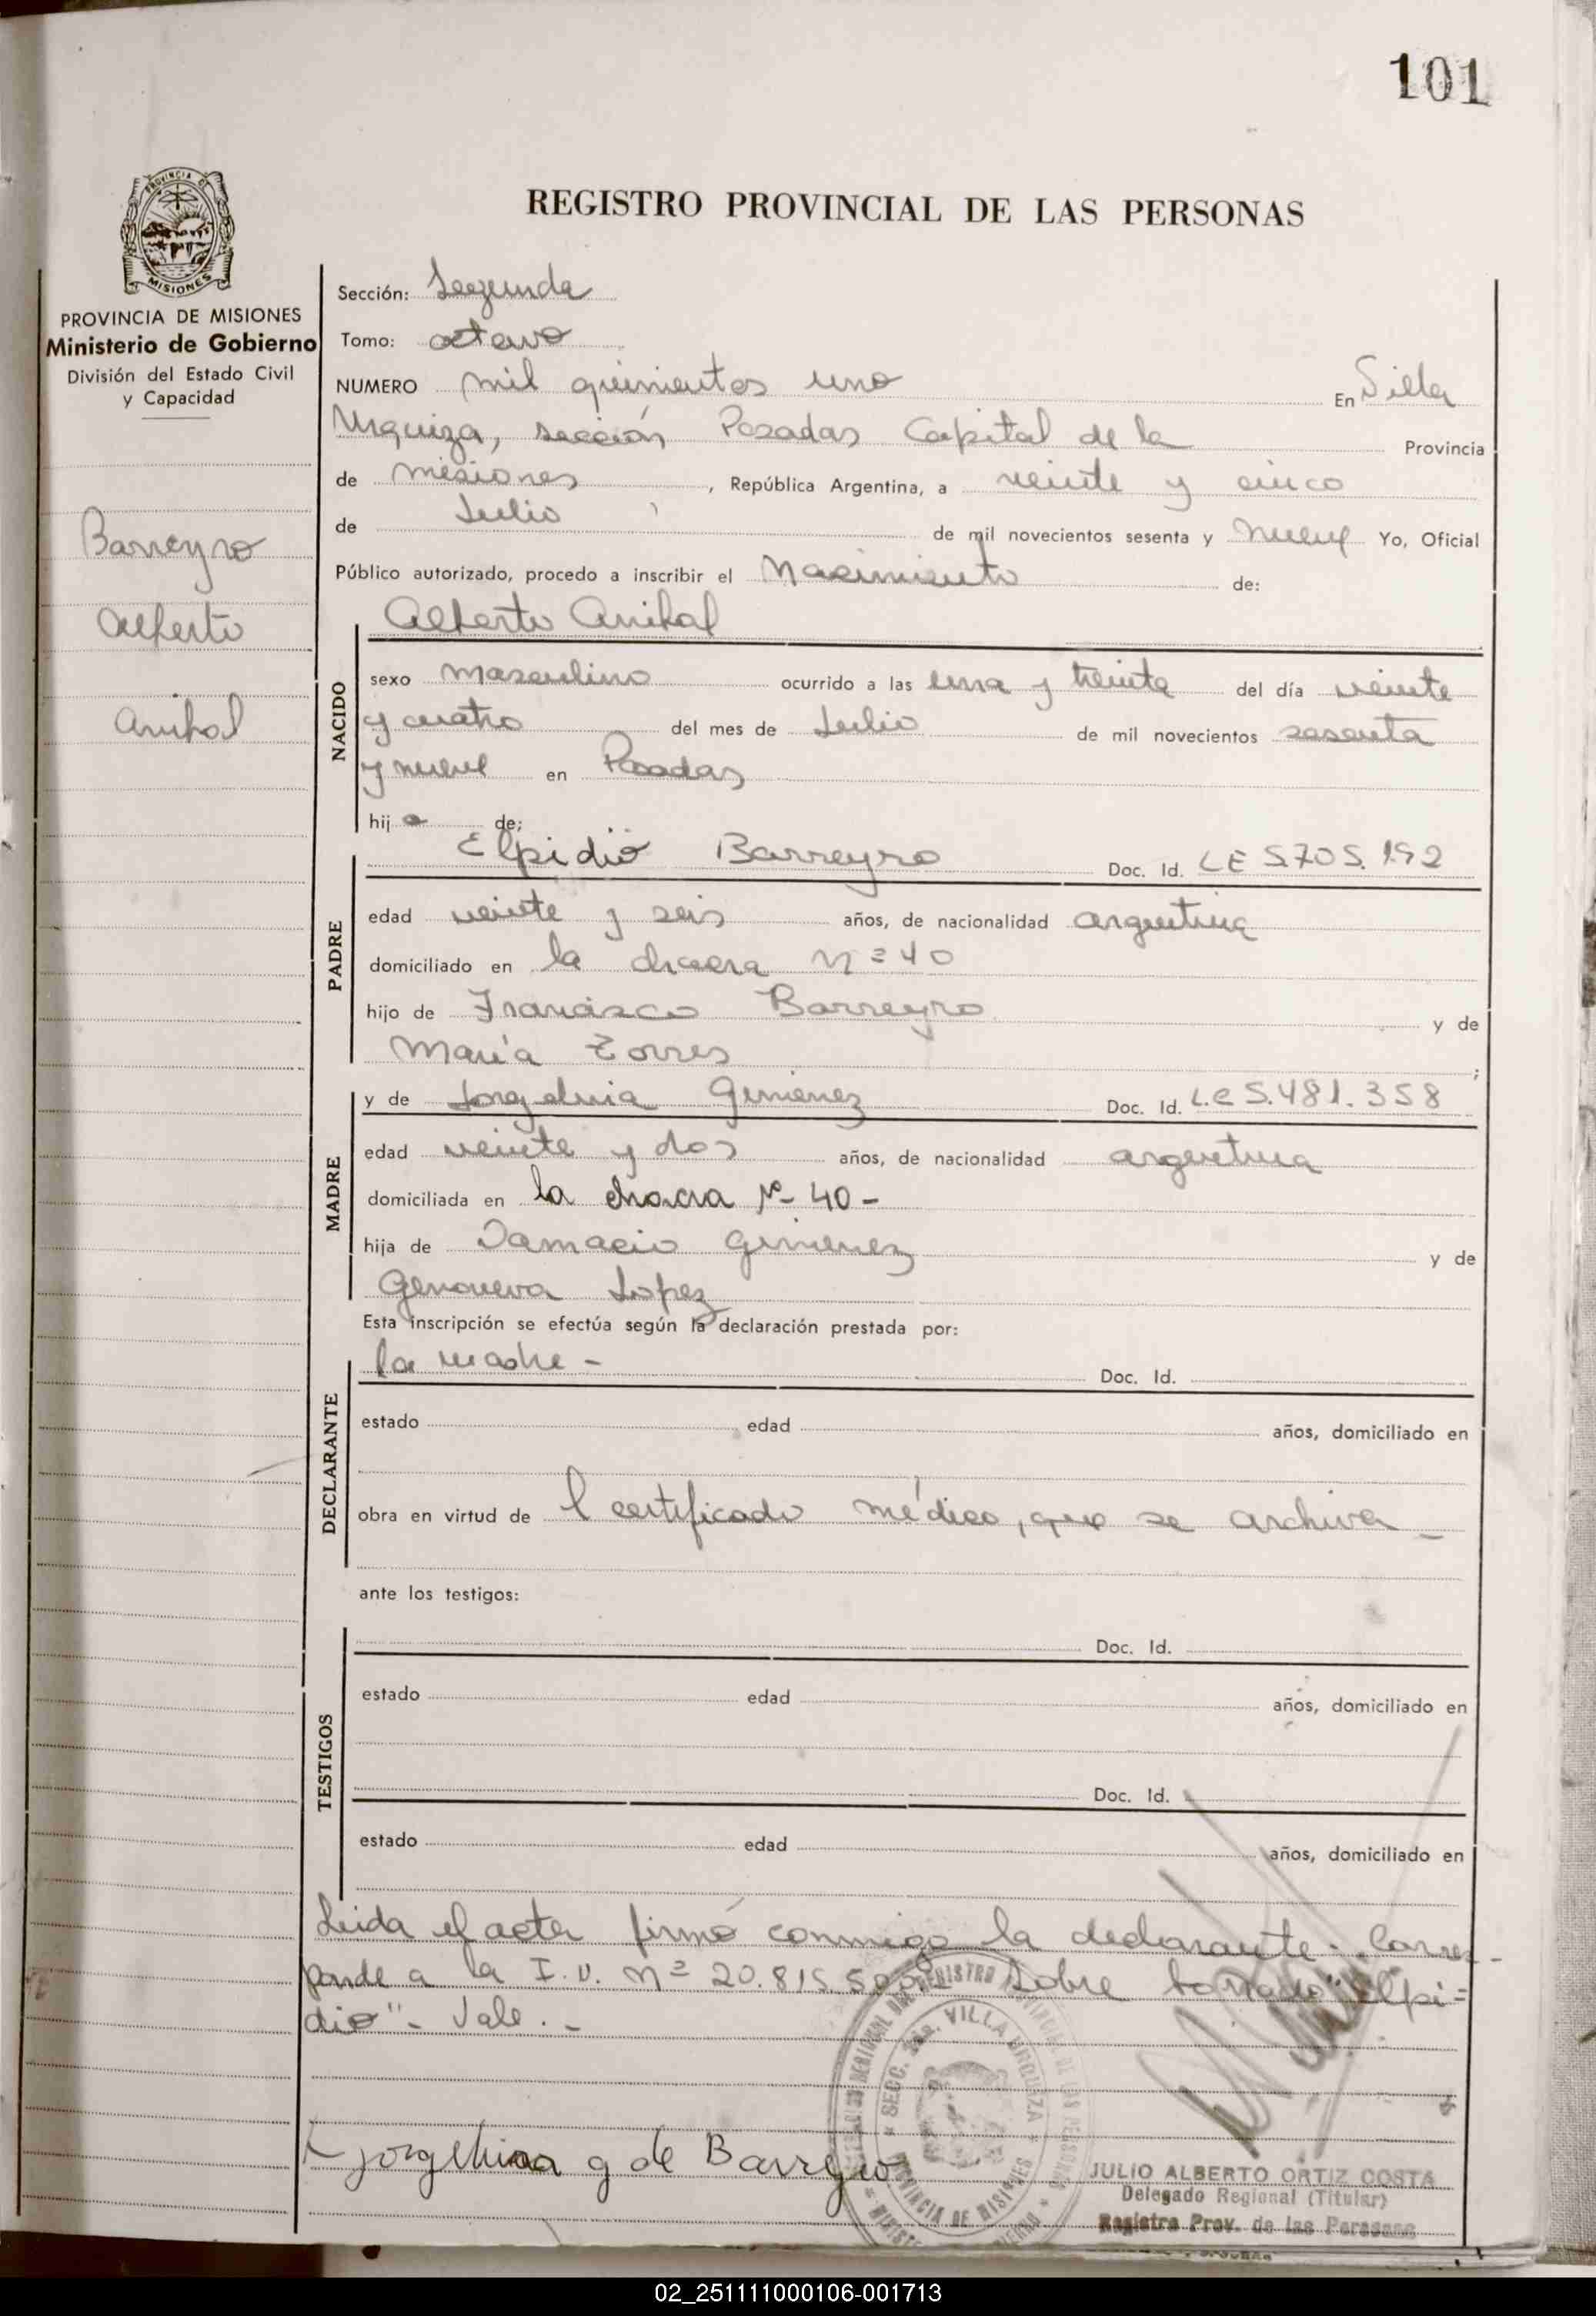 101
REGISTRO PROVINCIAL DE LAS PERSONAS
PROVINCIA DE MISIONES
Ministerio de Gobierno
División del Estado Civil
y Capacidad
Barreyro
Alberto
Anibal
Sección: Segunda
Tomo: octavo
NUMERO mil quinientos uno En Villa
Urquiza, sección Posadas Capital de la Provincia
de Misiones, República Argentina, a veinte y cinco
de Julio de mil novecientos sesenta y nueve Yo, Oficial
Público autorizado, procedo a inscribir el Nacimiento de:
Alberto Anibal
NACIDO
sexo masculino ocurrido a las una y treinta del día veinte
y cuatro del mes de Julio de mil novecientos sesenta
y nueve en Posadas
hijo de:
Elpidio Barreyro Doc. Id. LE 5.705.192
PADRE
edad veinte y seis años, de nacionalidad argentina
domiciliado en la chacra Nº 40
hijo de Francisco Barreyro y de
María Torres ;
y de Jorgelina Gimenez Doc. Id. L.C 5.481.358
MADRE
edad veinte y dos años, de nacionalidad argentina
domiciliada en la chacra Nº 40-
hija de Damacio Gimenez y de
Genoveva Lopez
Esta inscripción se efectúa según la declaración prestada por:
la madre - Doc. Id.
DECLARANTE
estado edad años, domiciliado en
obra en virtud de l certificado médico, que se archiva -
ante los testigos:
Doc. Id.
TESTIGOS
estado edad años, domiciliado en
Doc. Id.
estado edad años, domiciliado en
Leida el acta firmó conmigo la declarante. Corres-
ponde a la I.U. Nº 20.815.500. Sobre borrado "Elpi=
dio" - Vale. -
Jorgelina g de Barreyro
SECC. VILLA URQUIZA
PROVINCIA DE MISIONES
JULIO ALBERTO ORTIZ COSTA
Delegado Regional (Titular)
Registro Prov. de las Personas
02_251111000106-001713